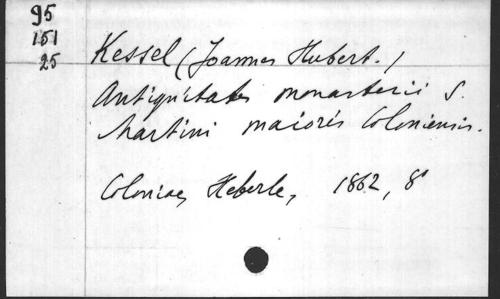 95
151
25
Kessel (Joannes Hubert.)
Antiquitates monasterii S.
Martini maioris Coloniensis.
Coloniae, Heberle, 1862, 8°